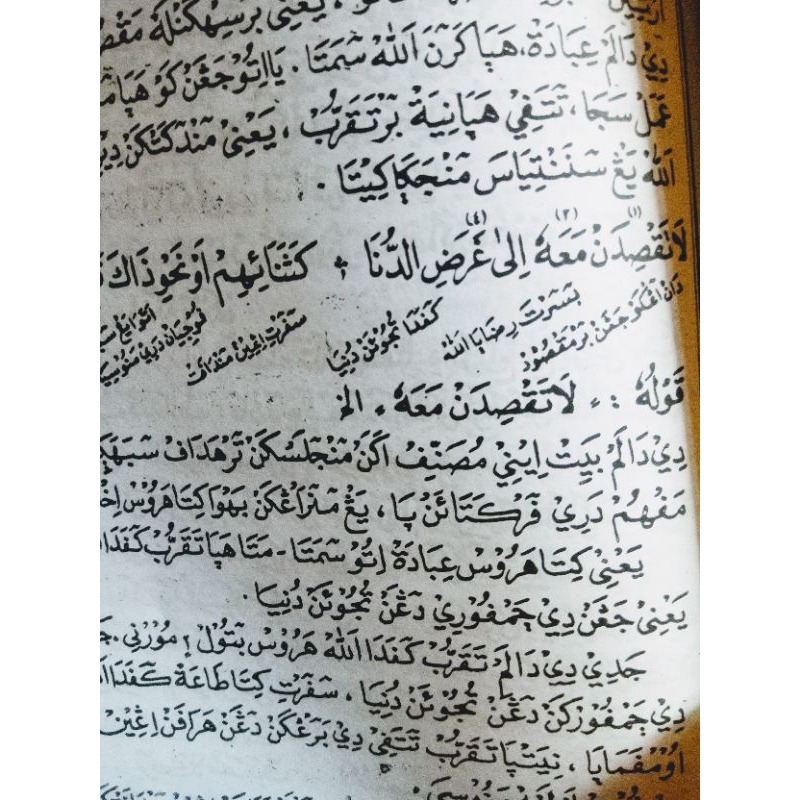 دي دالم عبادة، هيا كرن الله سمتا . يااتو جڠن كو هيا
عمل سجا، تتفي هيا نية برتقرب ، يعني مندكتكن دي
الله يڠ سننتياس منجكا كيتا .
لَاتَقْصِدَنْ مَعَهُ إِلَى غَرَضِ الدُّنَا ؞ كَثَنَائِهِمْ اَوْ نَحْوِ ذَاكَ
(١) (٢) (٤)
دان اڠكو جڠن برمقصود
بسرت رضايا الله
كفدا تجوئن دنيا
سفرت اڠين
قَوْلُهُ : ، لَاتَقْصِدَنْ مَعَهُ ، الخ
دي دالم بيت إيني مصنف اكن منجلسكن ترهداف
مفهم دري فركتائن يا ، يڠ منراڠكن بهوا كيتا هروس
يعني كيتا هروس عبادة اتو سمتا - متا هيا تقرب كفدا
يعني جڠن دي چمفوري دڠن تجوئن دنيا .
جدي دي دالم تقرب كفدا الله هروس بتول ٢ مورني .
دي چمفوركن دڠن تجوئن دنيا ، سفرت كيتا طاعة كفدا
اومفمايا ، نيتيا تقرب تتفي دي برڠكن دڠن هرافن اڠين